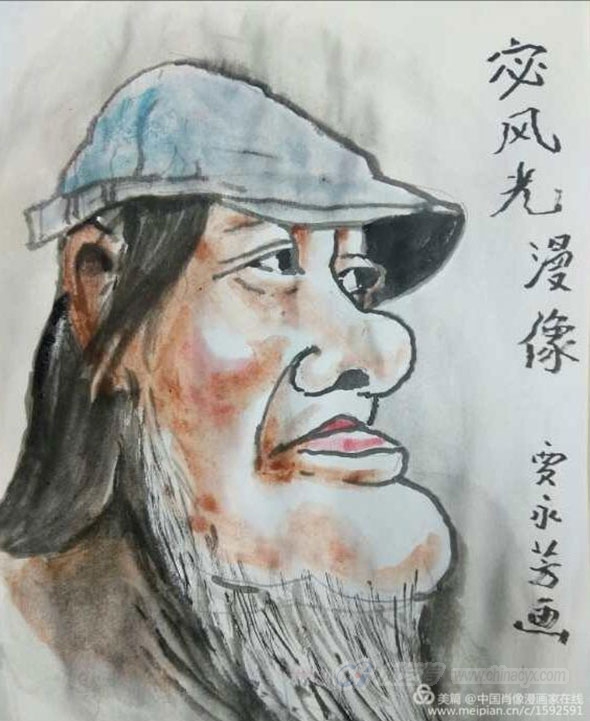 宓风光漫像
贾永芳画
www.chinadyx.com
美篇 @中国肖像漫画家在线
www.meipian.cn/c/1592591